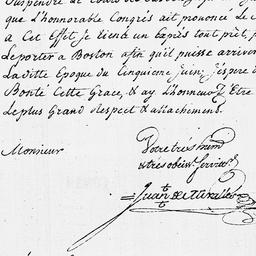 Suspendre
que L'honnorable Congrés ait prononcé Le
a Cet Effet Je tiens un Exprés tout prêt, p
Le porter a Boston afin qu'il puisse arriver
La ditte Epoque du Cinquieme Juin, J'espere d
Bonté Cette Grace, & ay L'honneur d'Être
Le plus Grand Respect & attachement.
Monsieur
Votre trés hum
& trés obeist Servitr
Juan de Miralles